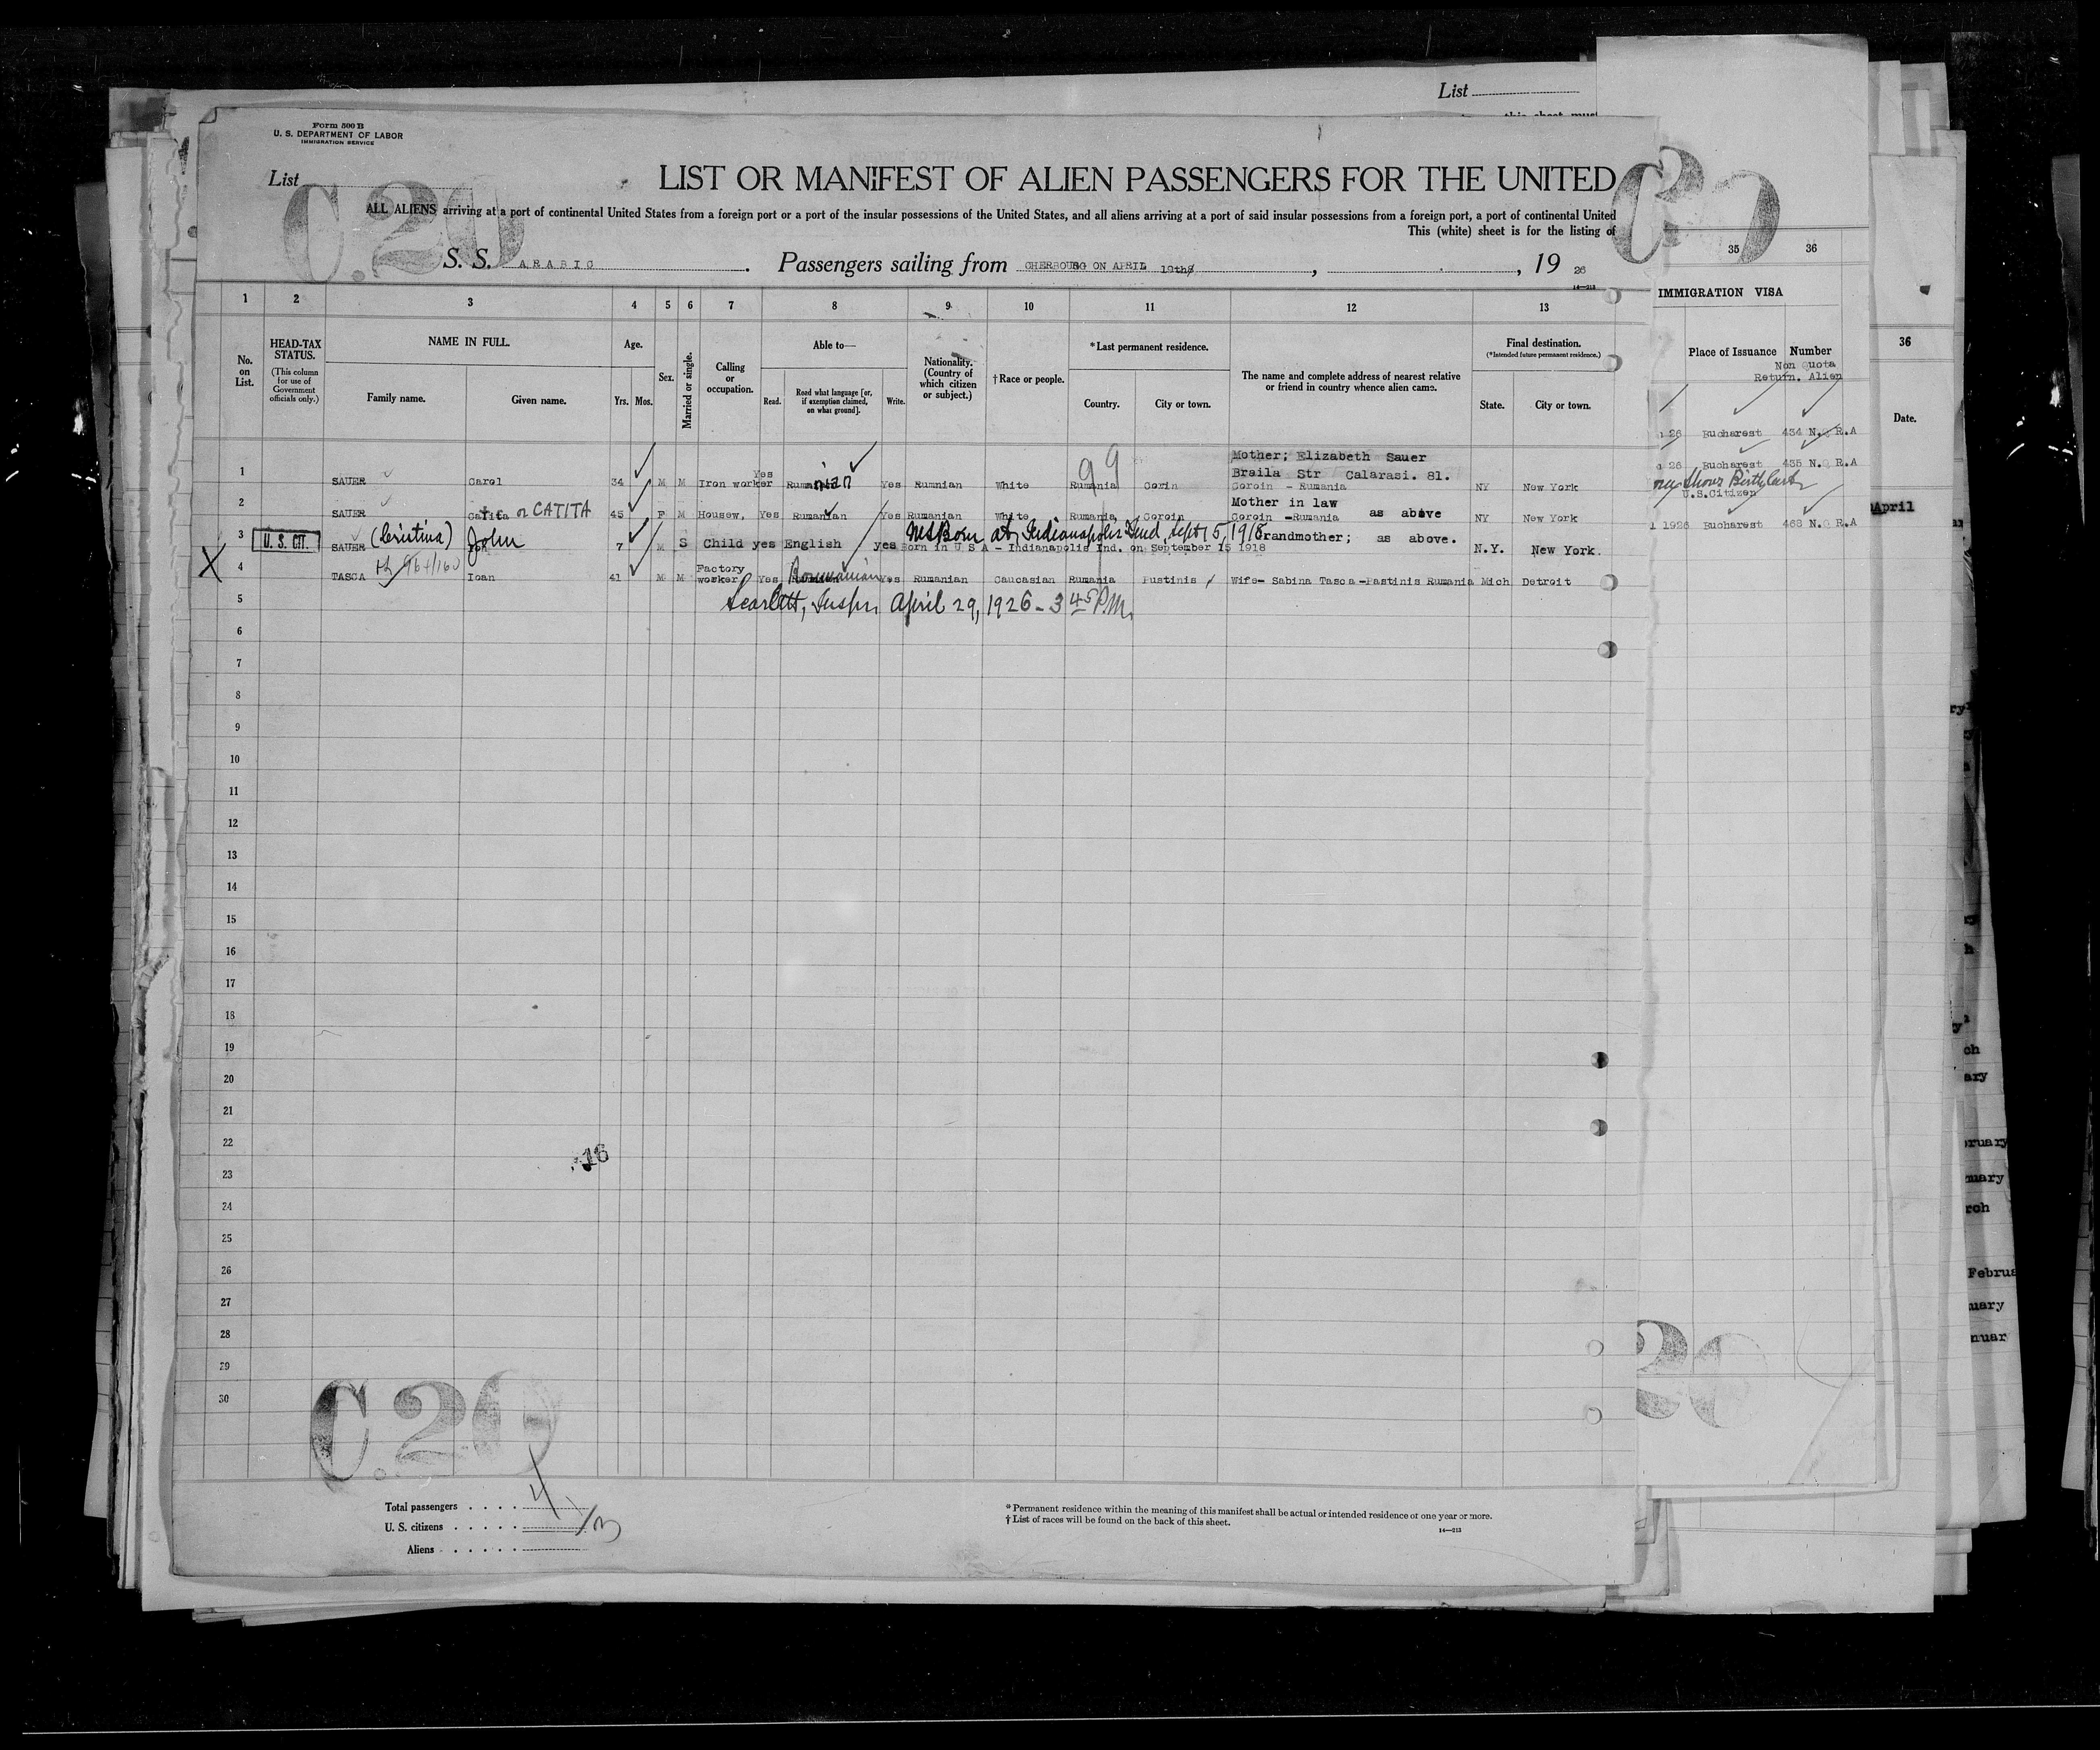 List
this sheet must
Form 500 B
U. S. DEPARTMENT OF LABOR
IMMIGRATION SERVICE
List
C.20
LIST OR MANIFEST OF ALIEN PASSENGERS FOR THE UNITED
ALL ALIENS arriving at a port of continental United States from a foreign port or a port of the insular possessions of the United States, and all aliens arriving at a port of said insular possessions from a foreign port, a port of continental United
This (white) sheet is for the listing of
S. S. ARABIC. Passengers sailing from CHERBOURG ON APRIL, 19 26
14—213
1 2 3 4 5 6 7 8 9 10 11 12 13
No. on List.
HEAD-TAX STATUS.
(This column for use of Government officials only.)
NAME IN FULL.
Family name. Given name.
Age.
Yrs. Mos.
Sex.
Married or single.
Calling or occupation.
Able to—
Read. Read what language [or, if exemption claimed, on what ground]. Write.
Nationality. (Country of which citizen or subject.)
†Race or people.
*Last permanent residence.
Country. City or town.
The name and complete address of nearest relative or friend in country whence alien came.
Final destination.
(*Intended future permanent residence.)
State. City or town.
35 36
IMMIGRATION VISA
Place of Issuance Number
Non Quota
Return. Alien
36
Date.
99
1 SAUER Carol 34 M M Iron worker Yes Rumanian Yes Rumnian White Rumania Corin Mother; Elizabeth Sauer
Braila Str Calarasi. 81.
Coroin - Rumania NY New York
26 Bucharest 434 N.Q R.A
2 SAUER or CATITA 45 F M Housew, Yes Rumanian Yes Rumanian White Rumania Coroin Mother in law
Coroin -Rumania as above NY New York
26 Bucharest 435 N.Q R.A
3 U. S. CIT. SAUER (Cristina) John 7 M S Child yes English yes Born at Indianapolis Ind, Sept 15, 1918 Grandmother; as above. N.Y. New York.
Born in U S A - Indianapolis Ind. on September 15 1918
Birth Cert
U.S.Citizen
4 X TASCA Ioan 41 M M Factory worker Yes Roumanian Yes Rumanian Caucasian Rumania Pustinis Wife- Sabina Tasca -Pastinis Rumania Mich Detroit
1926 Bucharest 468 N.Q R.A
April
5 Scarlett, Inspr. April 29, 1926 - 3 45 P.M.
6
7
8
9
10
11
12
13
14
15
16
17
18
19
20
21
22
16
23
24
25
26
27
28
29
30
C.20
20
Total passengers 4
U. S. citizens 1/3
Aliens
* Permanent residence within the meaning of this manifest shall be actual or intended residence of one year or more.
† List of races will be found on the back of this sheet.
14—213